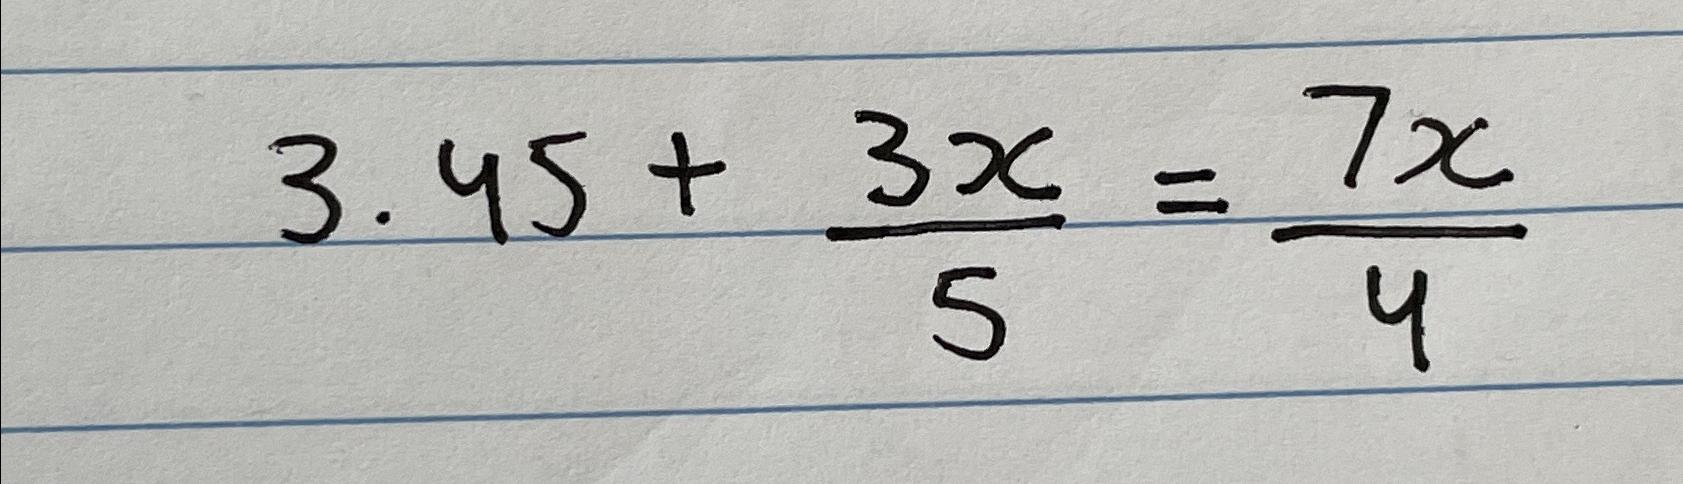 3.45 + 3x/5 = 7x/4